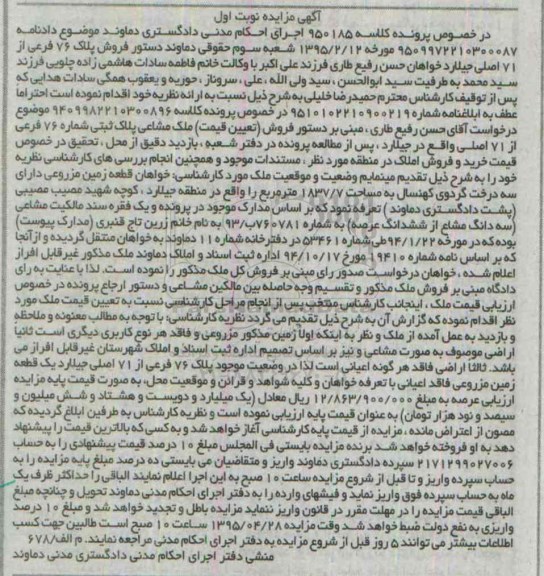 آگهی مزایده نوبت اول
در خصوص پرونده کلاسه ۹۵۰۱۸۵ اجرای احکام مدنی دادگستری دماوند موضوع دادنامه
۹۵۰۹۹۷۲۲۱۰۳۰۰۰۸۷ مورخه ۱۳۹۵/۲/۱۲ شعبه سوم حقوقی دماوند دستور فروش پلاک ۷۶ فرعی از
۷۱ اصلی جیلارد خواهان حسن رفیع طاری فرزند علی اکبر با وکالت خانم فاطمه سادات هاشمی زاده جلویی فرزند
سید محمد به طرفیت سید ابوالحسن ، سید ولی الله ، علی ، سروناز ، حوریه و یعقوب همگی سادات هدایی که
پس از توقیف کارشناس محترم حمیدرضا خلیلی به شرح ذیل نسبت به ارائه نظریه خود اقدام نموده است احتراما
عطف به ابلاغنامه شماره ۹۵۱۰۱۰۲۲۱۰۹۰۰۲۱۹ در خصوص پرونده کلاسه ۹۴۰۹۹۸۲۲۱۰۳۰۰۸۹۶ موضوع
درخواست آقای حسن رفیع طاری ، مبنی بر دستور فروش (تعیین قیمت) ملک مشاعی پلاک ثبتی شماره ۷۶ فرعی
از ۷۱ اصلی واقع در جیلارد ، پس از مطالعه پرونده در دفتر شعبه ، بازدید دقیق از محل ، تحقیق در خصوص
قیمت خرید و فروش املاک در منطقه مورد نظر ، مستندات موجود و همچنین انجام بررسی های کارشناسی نظریه
خود را به شرح ذیل تقدیم مینمایم وضعیت و موقعیت ملک مورد کارشناسی: خواهان قطعه زمین مزروعی دارای
سه درخت گردوی کهنسال به مساحت ۱۸۳۷/۷ مترمربع را واقع در منطقه جیلارد ، کوچه شهید مصیب مصیبی
(پشت دادگستری دماوند ) تعرفه نمود که بر اساس مدارک موجود در پرونده و یک فقره سند مالکیت مشاعی
(سه دانگ مشاع از ششدانگ عرصه) به شماره ۷۶۰۷۸۱ب/۹۳ به نام خانم زرین تاج قنبری (مدارک پیوست)
بوده که در مورخه ۹۴/۱/۲۲ طی شماره ۵۳۴۶۱ در دفترخانه شماره ۱۱ دماوند به خواهان منتقل گردیده و از آنجا
که بر اساس نامه شماره ۱۹۴۱۰ مورخ ۹۴/۱۰/۱۷ اداره ثبت اسناد و املاک دماوند ملک مذکور غیرقابل افراز
اعلام شده ، خواهان درخواست صدور رای مبنی بر فروش کل ملک مذکور را نموده است. لذا با عنایت به رای
دادگاه مبنی بر فروش ملک مذکور و تقسیم وجه حاصله بین مالکین مشاعی و دستور ارجاع پرونده در خصوص
ارزیابی قیمت ملک ، اینجانب کارشناس منتخب پس از انجام مراحل کارشناسی نسبت به تعیین قیمت ملک مورد
نظر اقدام نموده که گزارش آن به شرح ذیل تقدیمی می گردد نظریه کارشناسی: با توجه به مطالب معنونه و ملاحظه
و بازدید به عمل آمده از ملک و نظر به اینکه اولا زمین مذکور مزروعی و فاقد هر نوع کاربری دیگری است ثانیا
اراضی موصوف به صورت مشاعی و نیز بر اساس تصمیم اداره ثبت اسناد و املاک شهرستان غیرقابل افراز می
باشد. ثالثا اراضی فاقد هر گونه اعیانی است لذا در وضعیت موجود پلاک ۷۶ فرعی از ۷۱ اصلی جیلارد یک قطعه
زمین مزروعی فاقد اعیانی با تعرفه خواهان و کلیه شواهد و قرائن و موقعیت محل، به صورت قیمت پایه مزایده
ارزیابی عرصه به مبلغ ۱۲/۸۶۳/۹۰۰/۰۰۰ ریال معادل (یک میلیارد و دویست و هشتاد و شش میلیون و
سیصد و نود هزار تومان) به عنوان قیمت پایه ارزیابی نموده است و نظریه کارشناسی به طرفین ابلاغ گردیده که
مصون از اعتراض مانده ، مزایده از قیمت پایه کارشناسی آغاز خواهد شد و به کسی که بالاترین قیمت را پیشنهاد
دهد به او فروخته خواهد شد برنده مزایده بایستی فی المجلس مبلغ ۱۰ درصد قیمت پیشنهادی را به حساب
۲۱۷۱۲۹۹۰۲۷۰۰۶ سپرده دادگستری دماوند واریز و متقاضیان می بایستی ده درصد مبلغ پایه مزایده را به
حساب سپرده واریز و تا قبل از شروع مزایده ساعت ۱۰ صبح به این اجرا اعلام نمایند الباقی را حداکثر ظرف یک
ماه به حساب سپرده فوق واریز نماید و فیشهای وارده را به دفتر اجرای احکام مدنی دماوند تحویل و چنانچه مبلغ
الباقی قیمت مزایده را در مهلت مقرر در قانون واریز ننماید مزایده باطل و تجدید خواهد شد و مبلغ ۱۰ درصد
واریزی به نفع دولت ضبط خواهد شد وقت مزایده ۱۳۹۵/۰۴/۲۸ ساعت ۱۰ صبح است طالبین جهت کسب
اطلاعات بیشتر می توانند ۵ روز قبل از شروع مزایده به دفتر اجرای احکام مدنی مراجعه نمایند. م الف/۶۷۸
منشی دفتر اجرای احکام مدنی دادگستری مدنی دماوند